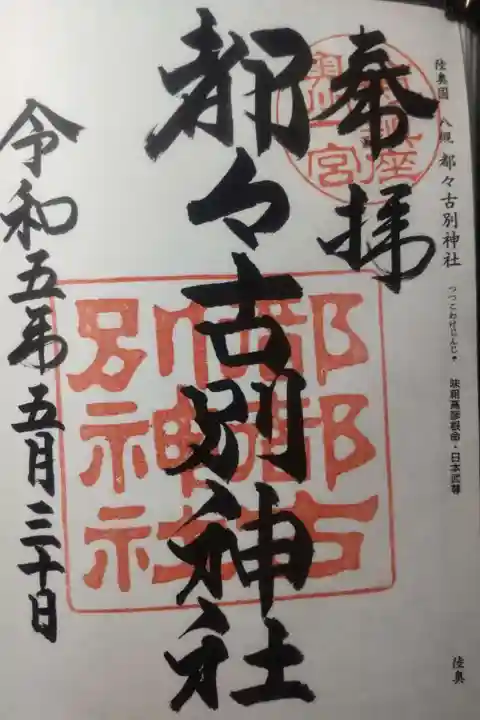 陸奥国 八槻 都々古別神社 つつこわけじんじゃ 味耜高彦根命・日本武尊
陸奥
奉拝
都々古別神社
令和五年五月三十日
都都古
別神社
一宮